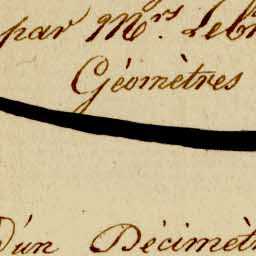 par M.rs Leb
Géomètres
D'un Décimèt